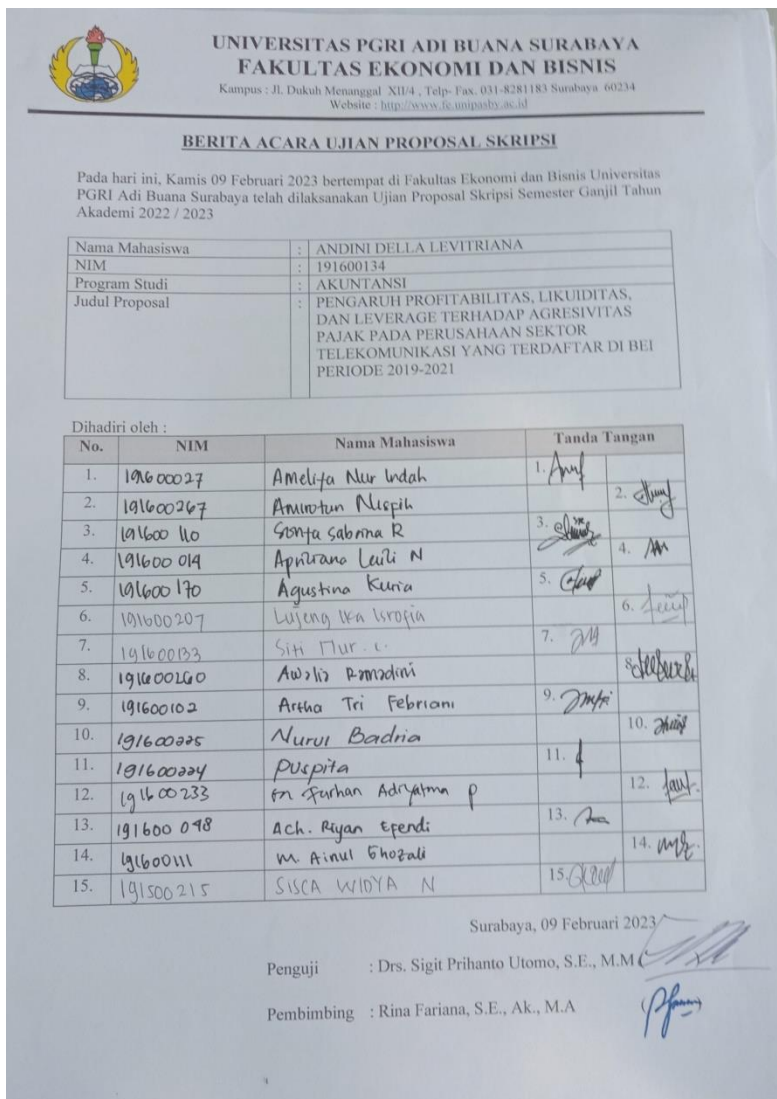 UNIVERSITAS PGRI ADI BUANA SURABAYA
FAKULTAS EKONOMI DAN BISNIS
Kampus : Jl. Dukuh Menanggal XII/4 , Telp- Fax. 031-8281183 Surabaya 60234
Website : http://www.fe.unipasby.ac.id
BERITA ACARA UJIAN PROPOSAL SKRIPSI
Pada hari ini, Kamis 09 Februari 2023 bertempat di Fakultas Ekonomi dan Bisnis Universitas
PGRI Adi Buana Surabaya telah dilaksanakan Ujian Proposal Skripsi Semester Ganjil Tahun
Akademi 2022 / 2023
Nama Mahasiswa : ANDINI DELLA LEVITRIANA
NIM : 191600134
Program Studi : AKUNTANSI
Judul Proposal : PENGARUH PROFITABILITAS, LIKUIDITAS,
DAN LEVERAGE TERHADAP AGRESIVITAS
PAJAK PADA PERUSAHAAN SEKTOR
TELEKOMUNIKASI YANG TERDAFTAR DI BEI
PERIODE 2019-2021
Dihadiri oleh :
No. NIM Nama Mahasiswa Tanda Tangan
1. 191600027 Amelita Nur Indah 1.
2. 191600267 Amirotun Nispih 2.
3. 191600 110 Sonta Sabrina R 3.
4. 191600 014 Apriliana Leili N 4.
5. 191600 170 Agustina Kuria 5.
6. 191600207 Lujeng Ika Isrofia 6.
7. 191600133 Siti Nur. 7.
8. 191600260 Awalia Ramadini 8
9. 191600102 Artha Tri Febriani 9.
10. 191600225 Nurul Badria 10.
11. 191600224 Puspita 11.
12. 191600233 Furhan Adryatma P 12.
13. 191600 048 Ach. Riyan Efendi 13.
14. 191600111 M. Ainul Ghozali 14.
15. 191500215 SISCA WIDYA N 15.
Surabaya, 09 Februari 2023
Penguji : Drs. Sigit Prihanto Utomo, S.E., M.M (
Pembimbing : Rina Fariana, S.E., Ak., M.A ( )